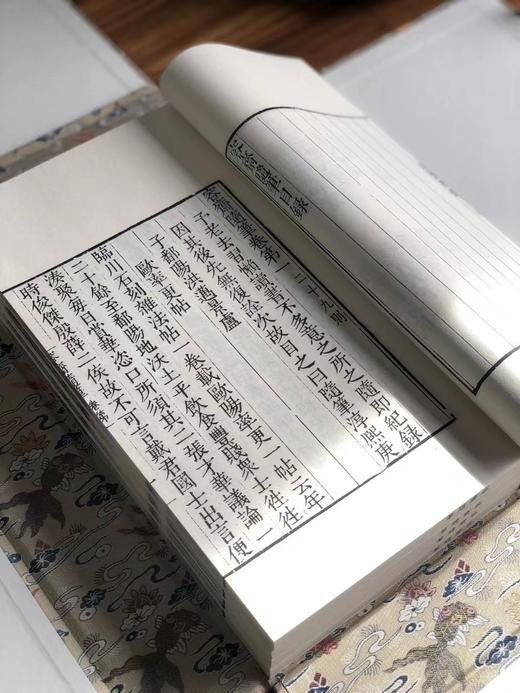 容齋隨筆目錄
容齋隨筆卷第一 二十九則
予老去習懶讀書不多意之所之隨即紀錄
因其後先無復詮次故目之曰隨筆淳熙庚
子鄱陽洪邁景盧
歐率更帖
臨川石刻雜法帖一卷載歐陽率更一帖云年
二十餘至鄱陽地沃土平飲食豐賤衆士往往
湊聚每日賞華恣口所須其二張才華議論一
時俊傑殷薛二侯故不可言戴君國士出言便